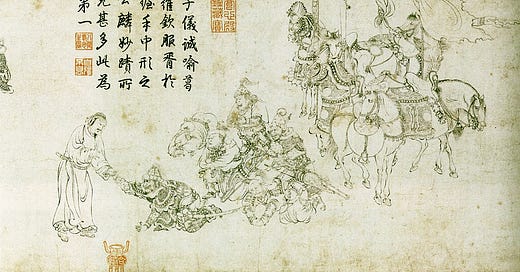 子儀誠喻葛
羅欽服胥於
手中形之
公麟妙蹟所
見甚多此為
第一